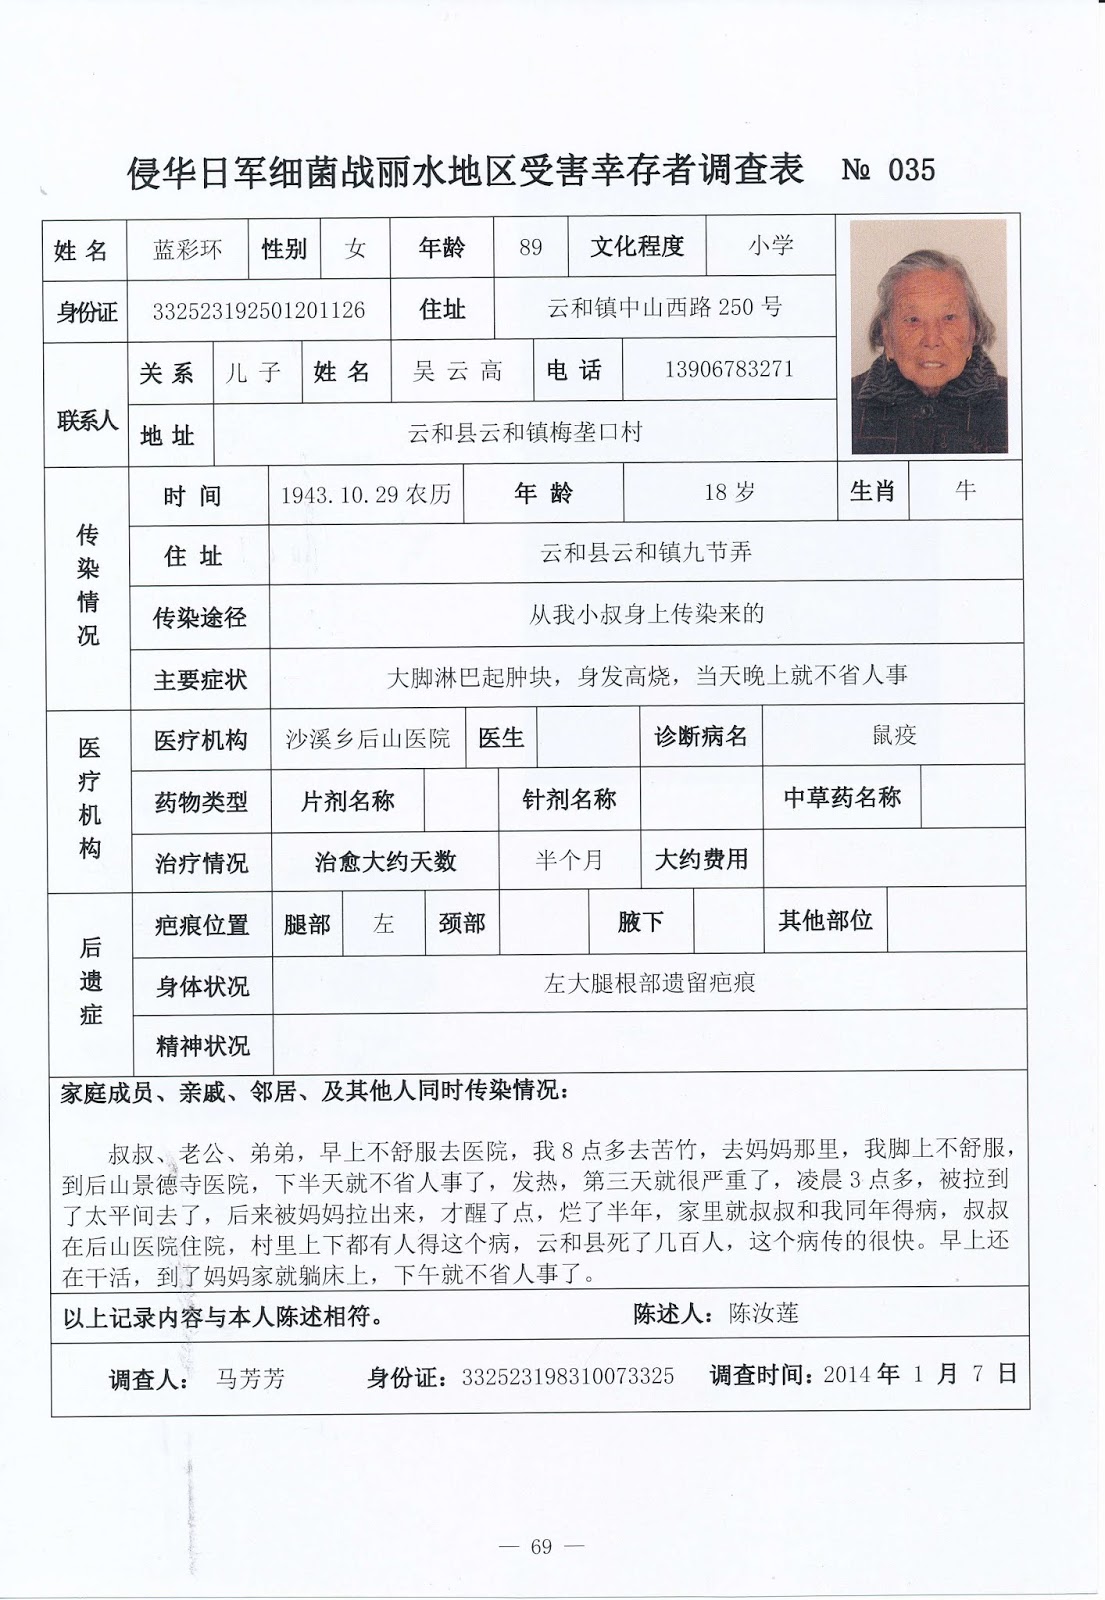 侵华日军细菌战丽水地区受害幸存者调查表 № 035
姓 名 蓝彩环 性别 女 年龄 89 文化程度 小学
身份证 332523192501201126 住址 云和镇中山西路 250 号
联系人 关 系 儿 子 姓 名 吴 云 高 电 话 13906783271
地 址 云和县云和镇梅垄口村
传染情况 时 间 1943.10.29 农历 年 龄 18 岁 生肖 牛
住 址 云和县云和镇九节弄
传染途径 从我小叔身上传染来的
主要症状 大脚淋巴起肿块，身发高烧，当天晚上就不省人事
医疗机构 医疗机构 沙溪乡后山医院 医生 诊断病名 鼠疫
药物类型 片剂名称 针剂名称 中草药名称
治疗情况 治愈大约天数 半个月 大约费用
后遗症 疤痕位置 腿部 左 颈部 腋下 其他部位
身体状况 左大腿根部遗留疤痕
精神状况
家庭成员、亲戚、邻居、及其他人同时传染情况：
叔叔、老公、弟弟，早上不舒服去医院，我 8 点多去苦竹，去妈妈那里，我脚上不舒服，
到后山景德寺医院，下半天就不省人事了，发热，第三天就很严重了，凌晨 3 点多，被拉到
了太平间去了，后来被妈妈拉出来，才醒了点，烂了半年，家里就叔叔和我同年得病，叔叔
在后山医院住院，村里上下都有人得这个病，云和县死了几百人，这个病传的很快。早上还
在干活，到了妈妈家就躺床上，下午就不省人事了。
以上记录内容与本人陈述相符。 陈述人：陈汝莲
调查人： 马芳芳 身份证：332523198310073325 调查时间：2014 年 1 月 7 日
— 69 —